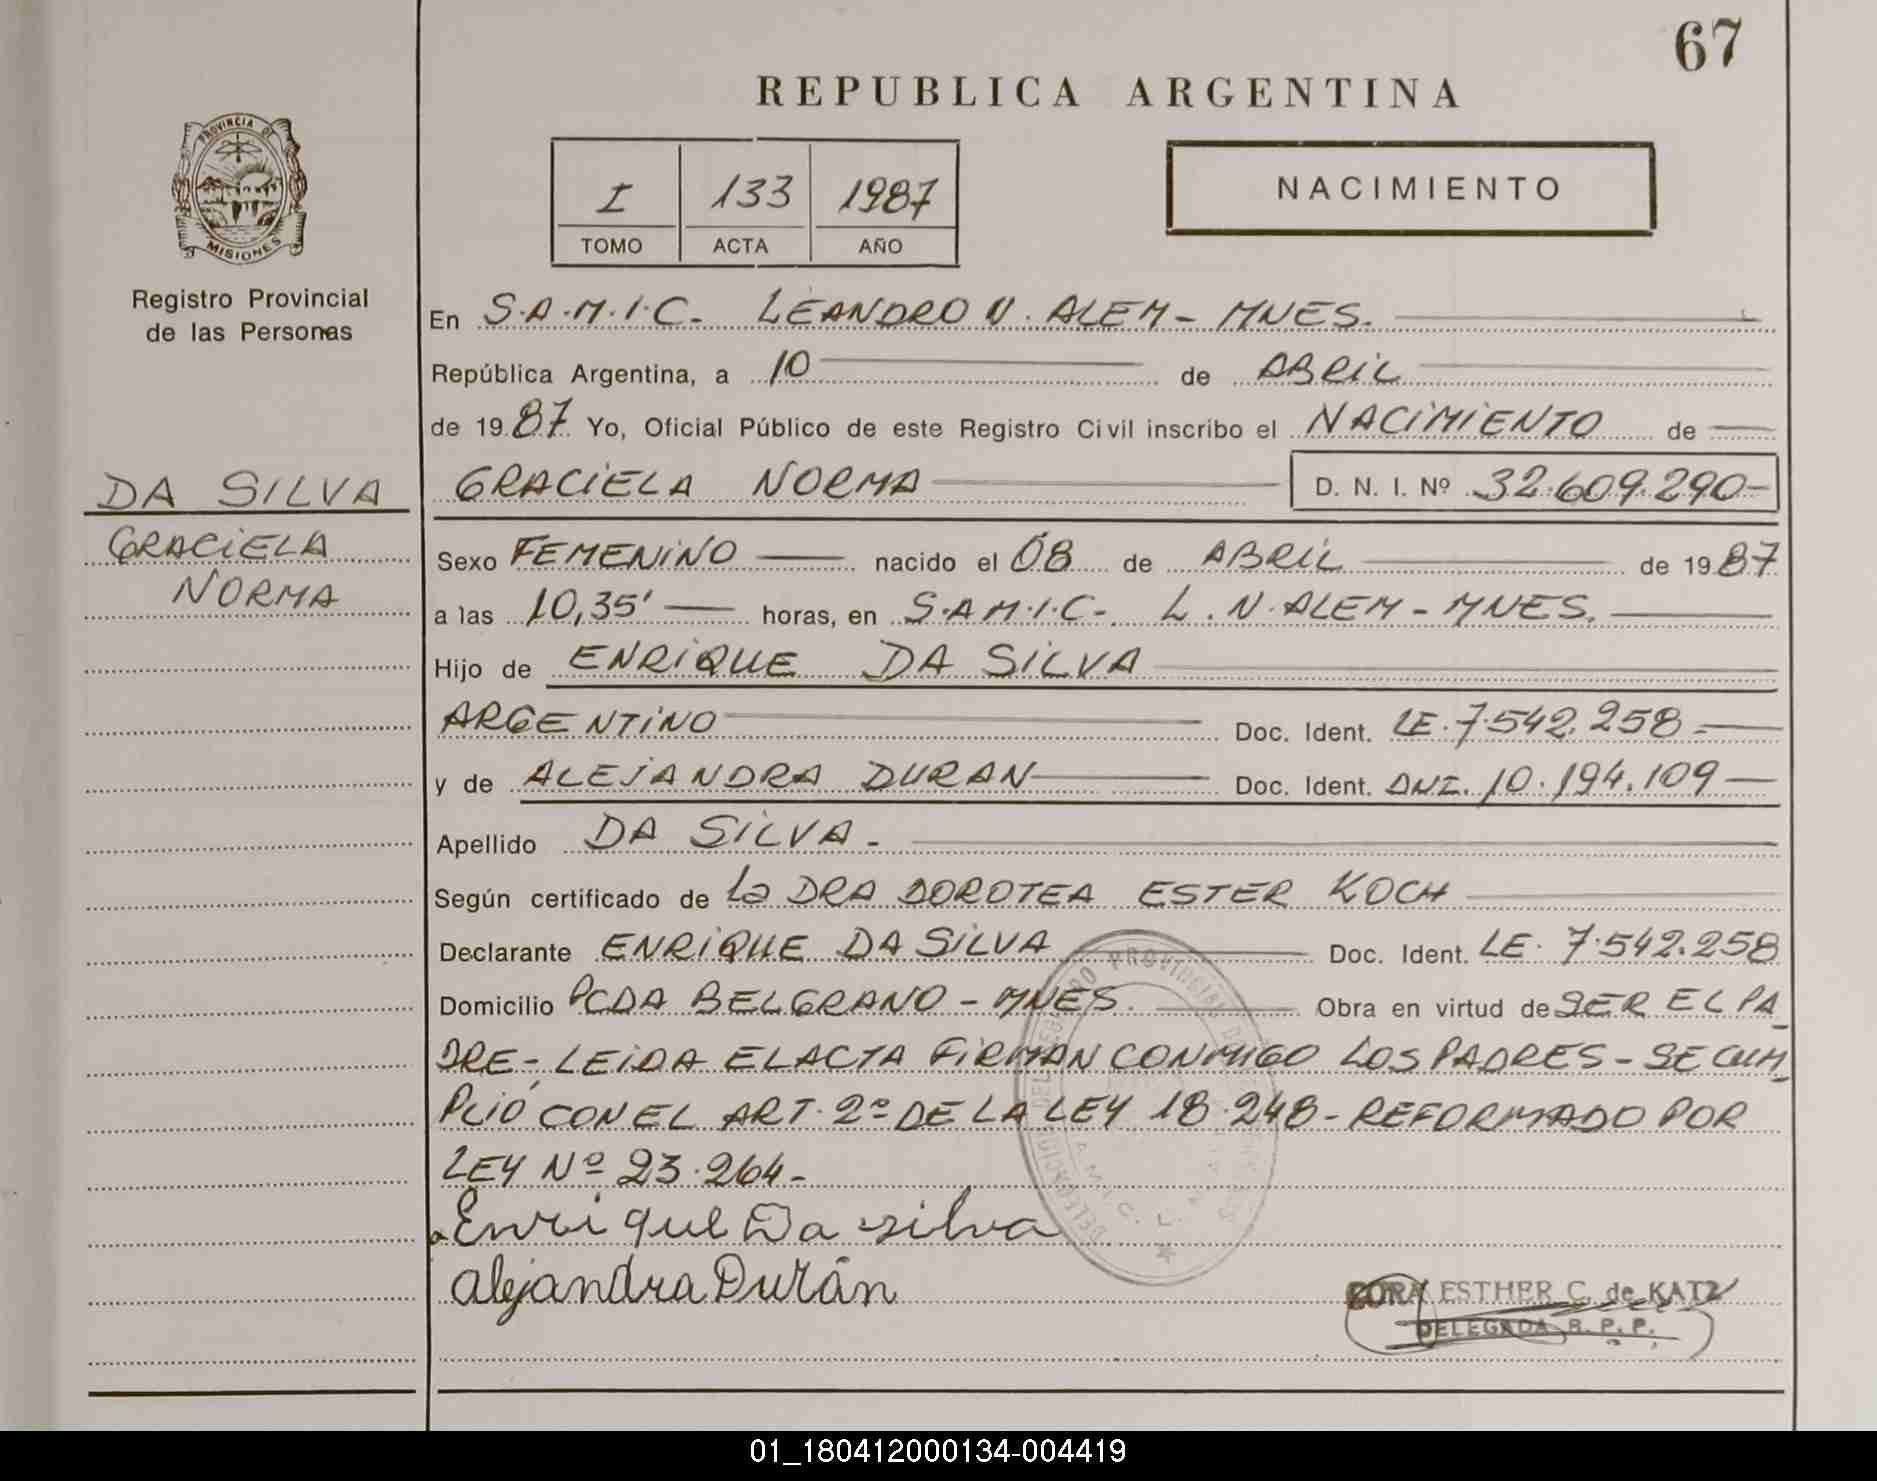 67
REPUBLICA ARGENTINA
PROVINCIA DE
MISIONES
I 133 1987
TOMO ACTA AÑO
NACIMIENTO
Registro Provincial
de las Personas
En S.A.M.I.C. LEANDRO N. ALEM - MNES.
República Argentina, a 10 de ABRIL
de 1987 Yo, Oficial Público de este Registro Civil inscribo el NACIMIENTO de
DA SILVA
GRACIELA
NORMA
GRACIELA NORMA D. N. I. Nº 32.609.290-
Sexo FEMENINO nacido el 08 de ABRIL de 1987
a las 10,35' horas, en S.A.M.I.C- L.N.ALEM - MNES.
Hijo de ENRIQUE DA SILVA
ARGENTINO Doc. Ident. LE.7.542.258-
y de ALEJANDRA DURAN Doc. Ident. DNI. 10.194.109
Apellido DA SILVA.-
Según certificado de La DRA DOROTEA ESTER KOCH
Declarante ENRIQUE DA SILVA Doc. Ident. LE. 7.542.258
Domicilio PCDA BELGRANO - MNES. Obra en virtud de SER EL PA_
DRE-LEIDA EL ACTA FIRMAN CONMIGO LOS PADRES - SE CUM_
PLIÓ CON EL ART. 2º DE LA LEY 18.248 - REFORMADO POR
LEY Nº 23.264-
Enrique Da silva
alejandra Durán
DORA ESTHER C. de KATZ
DELEGADA R. P. P.
01_180412000134-004419